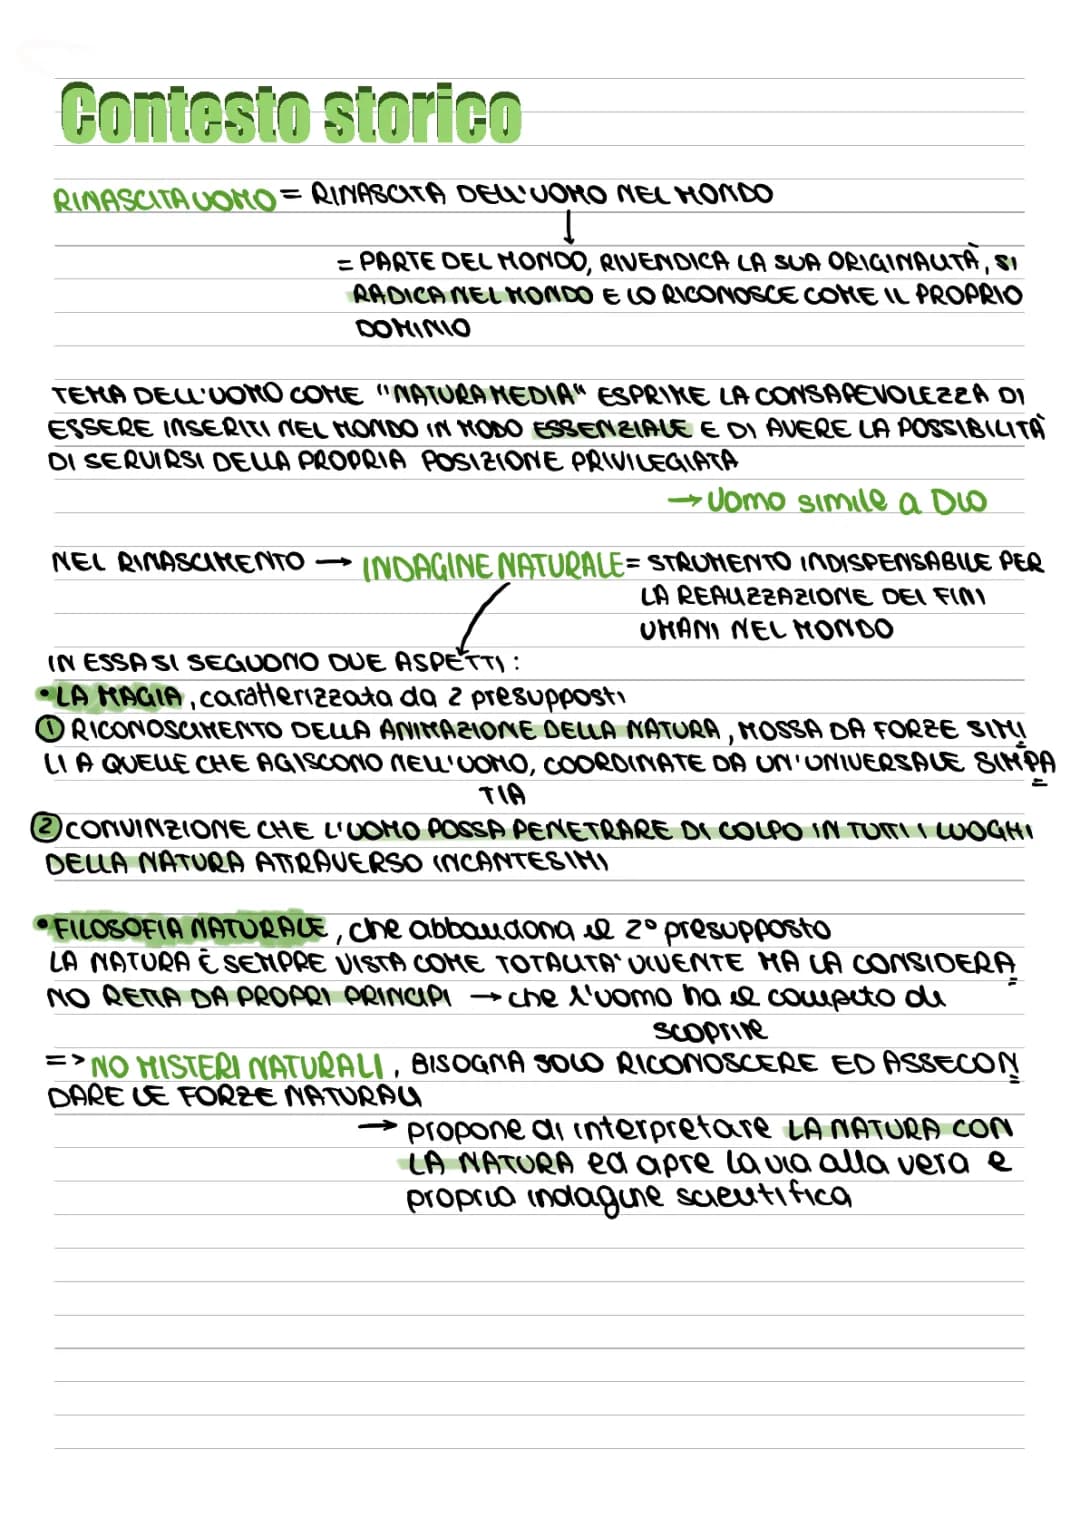 Contesto storico
RINASCITA UOMO = RINASCITA DELL'UOMO NEL MONDO
↓
= PARTE DEL MONDO, RIVENDICA LA SUA ORIGINALITÀ, SI
RADICA NEL MONDO E LO RICONOSCE COME IL PROPRIO
DOMINIO
TEMA DELL'UOMO COME "NATURA MEDIA" ESPRIME LA CONSAPEVOLEZZA DI
ESSERE INSERITI NEL MONDO IN MODO ESSENZIALE E DI AVERE LA POSSIBILITÀ
DI SERVIRSI DELLA PROPRIA POSIZIONE PRIVILEGIATA
→ Uomo simile a Dio
NEL RINASCIMENTO → INDAGINE NATURALE = STRUMENTO INDISPENSABILE PER
LA REALIZZAZIONE DEI FINI
UMANI NEL MONDO
IN ESSA SI SEGUONO DUE ASPETTI:
• LA MAGIA, caratterizzata da 2 presupposti
① RICONOSCIMENTO DELLA ANIMAZIONE DELLA NATURA, MOSSA DA FORZE SIMI
LI A QUELLE CHE AGISCONO NELL'UOMO, COORDINATE DA UN'UNIVERSALE SIMPA
TIA
② CONVINZIONE CHE L'UOMO POSSA PENETRARE DI COLPO IN TUTTI I LUOGHI
DELLA NATURA ATTRAVERSO INCANTESIMI
• FILOSOFIA NATURALE, che abbandona il 2° presupposto
LA NATURA È SEMPRE VISTA COME TOTALITA' VIVENTE MA LA CONSIDERA
NO RETTA DA PROPRI PRINCIPI → che l'uomo ha il compito di
scoprire
=> NO MISTERI NATURALI, BISOGNA SOLO RICONOSCERE ED ASSECON
DARE LE FORZE NATURALI
→ propone di interpretare LA NATURA CON
LA NATURA ed apre la via alla vera e
propria indagine scientifica